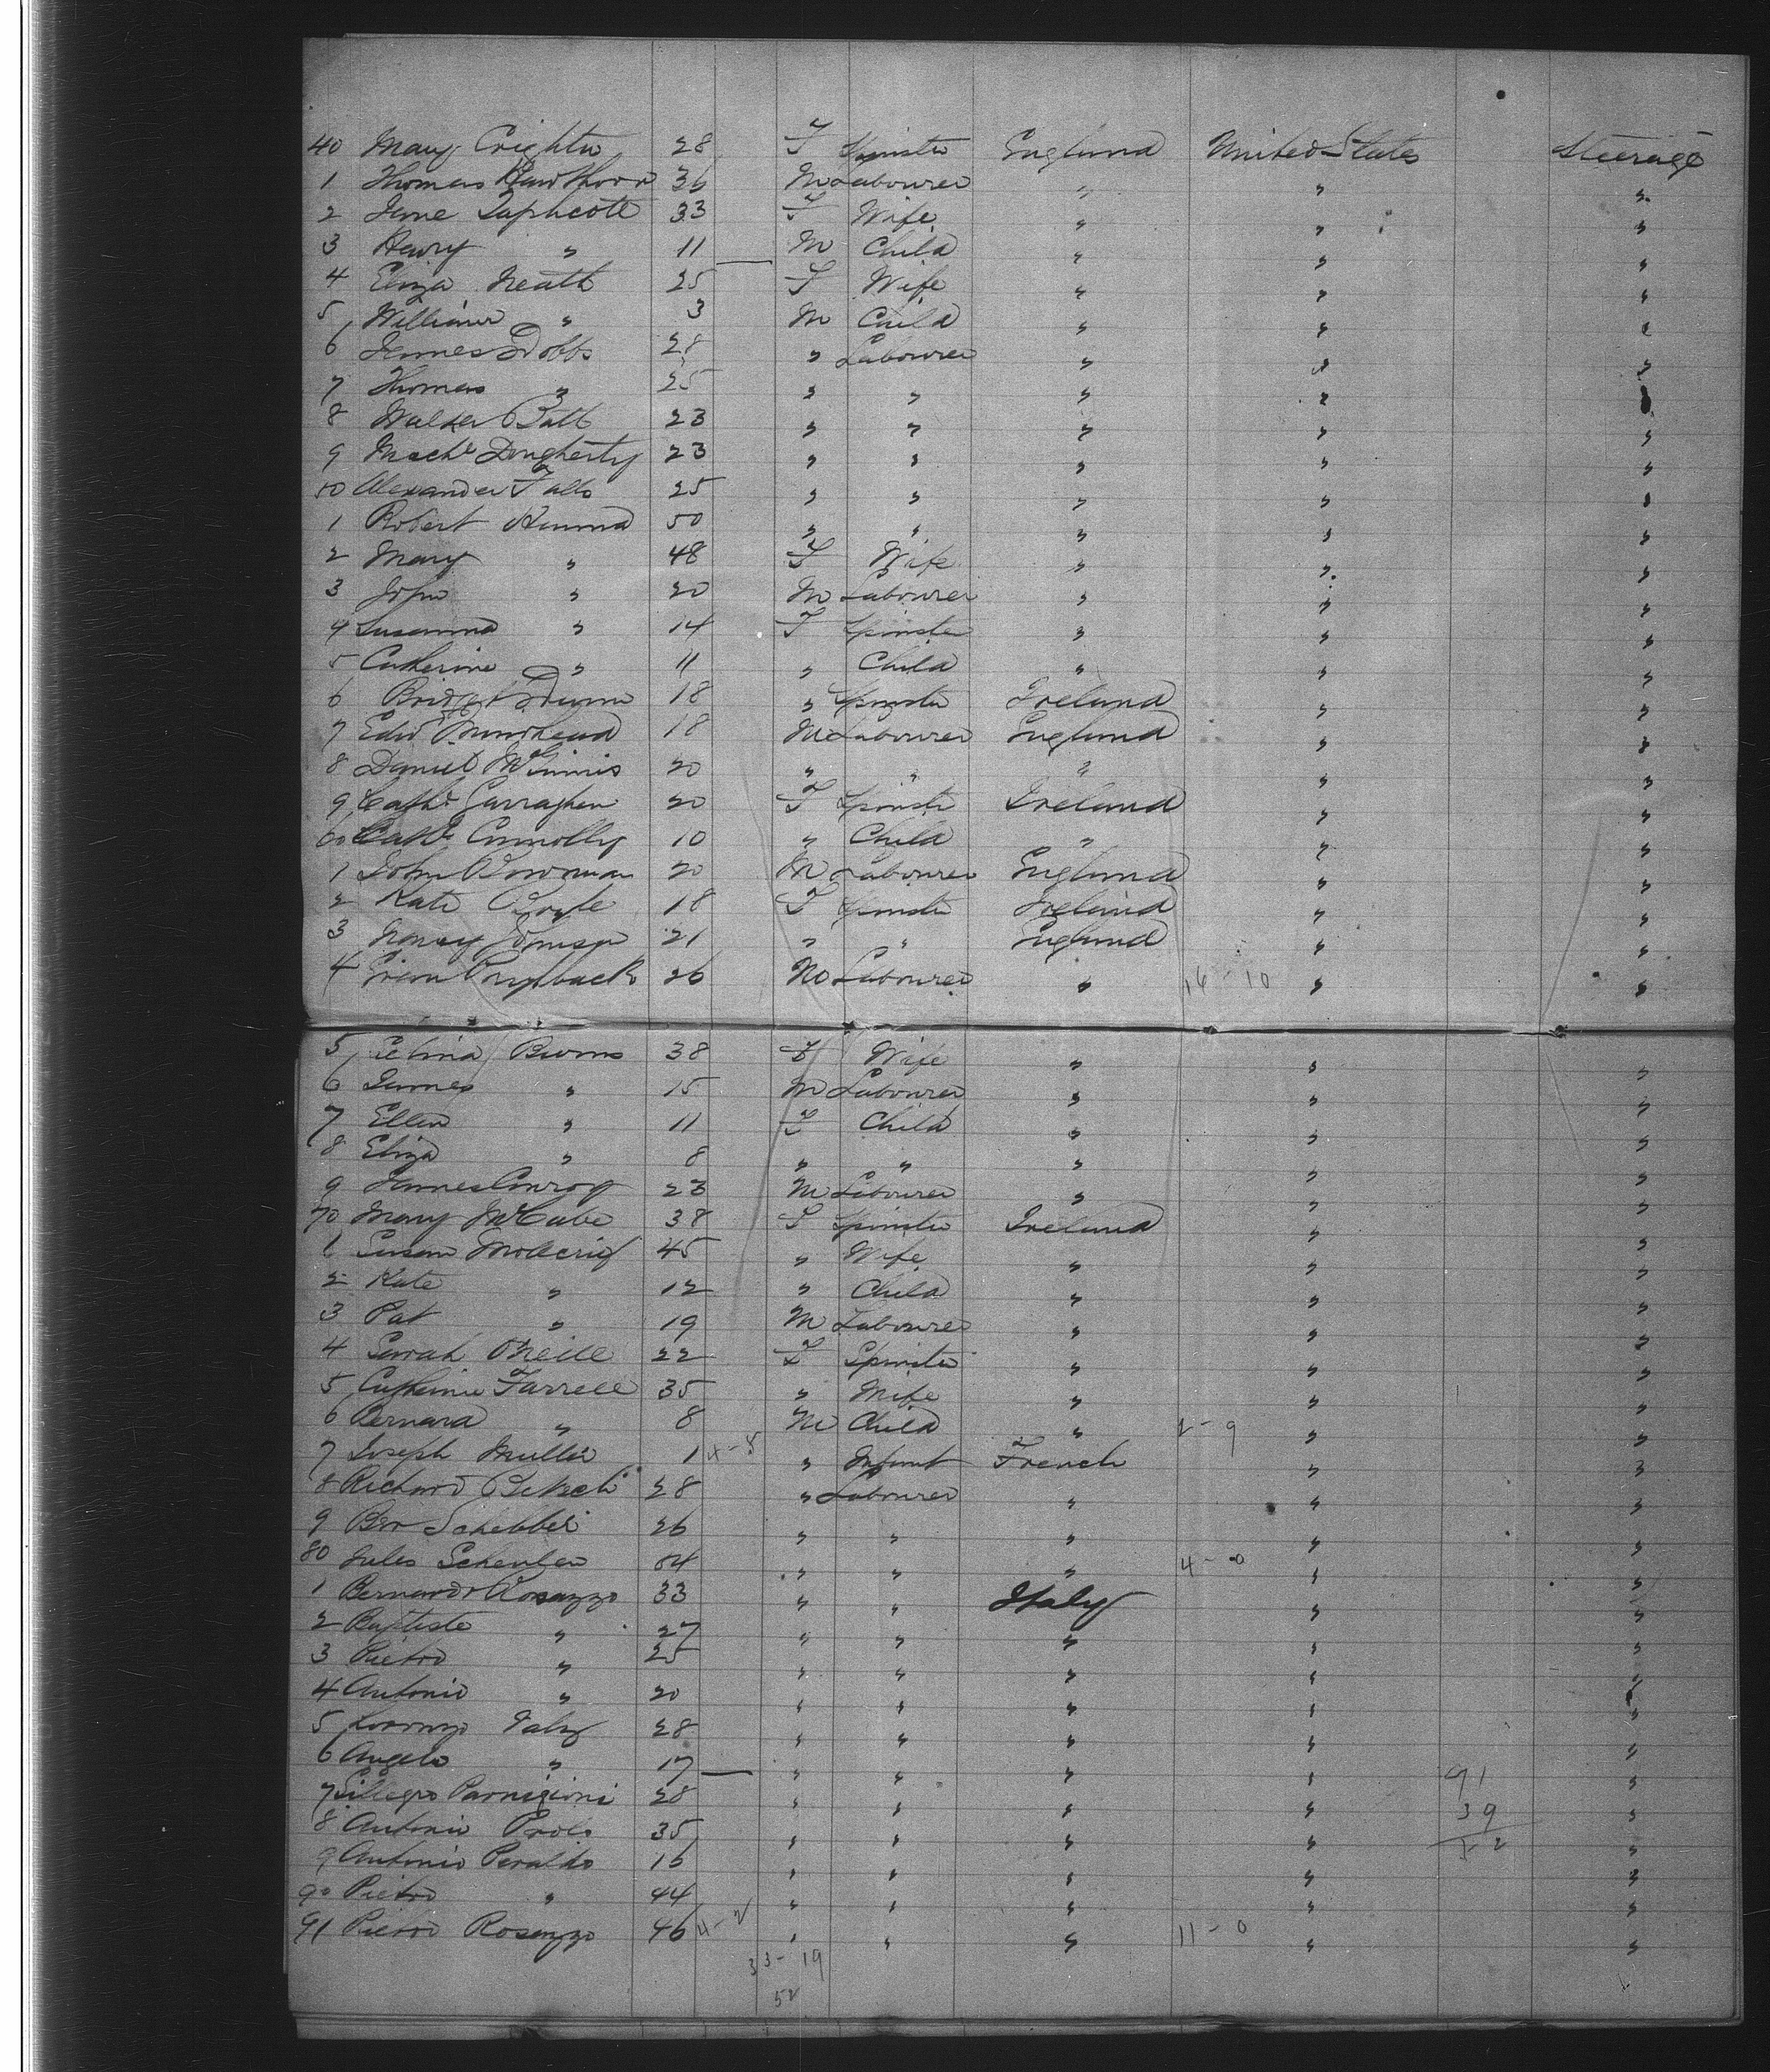 40 Mary Crighton 28 F Spinster England United States Steerage
1 Thomas Hawthorn 36 M Labourer " " "
2 Jane Taphcott 33 F Wife " " "
3 Henry " 11 M Child " " "
4 Eliza Neath 25 F Wife " " "
5 William " 3 M Child " " "
6 James Dobbs 28 " Labourer " " "
7 Thomas " 25 " " " " "
8 Walker Batt 23 " " " " "
9 Michl Dougherty 23 " " " " "
50 Alexander Falls 25 " " " " "
1 Robert Hanna 50 " " " " "
2 Mary " 48 F Wife " " "
3 John " 20 M Labourer " " "
4 Susanna " 14 F Spinster " " "
5 Catherine " 11 " Child " " "
6 Bridget Dunn 18 " Spinster Ireland " "
7 Edwd Muirhead 18 M Labourer England " "
8 Daniel McGinnis 20 " " " " "
9 Cathe Garraghan 20 F Spinster Ireland " "
60 Cathe Connolly 10 " Child " " "
1 John Bowman 20 M Labourer England " "
2 Kate Boyle 18 F Spinster Ireland " "
3 Nancy Johnson 21 " " England " "
4 26 M Labourer " 16 - 10 " "
5 Selina Burns 38 F Wife " " "
6 James " 15 M Labourer " " "
7 Ellen " 11 F Child " " "
8 Eliza " 8 " " " " "
9 James Conroy 23 M Labourer " " "
70 Mary McCabe 38 F Spinster Ireland " "
1 Susan 45 " Wife " " "
2 Kate " 12 " Child " " "
3 Pat " 19 M Labourer " " "
4 Sarah O'Neill 22 F Spinster " " "
5 Catherine Farrell 35 " Wife " " "
6 Bernard " 8 M Child " 2 - 9 " "
7 Joseph Muller 1 4-5 " Infant French " "
8 Richard 28 " Labourer " " "
9 26 " " " " "
80 Jules " " " 4 - 0 " "
1 Bernardo Rosazzo 33 " " Italy " "
2 Baptiste " 27 " " " " "
3 Pietro " 25 " " " " "
4 Antonio " 20 " " " " "
5 Lorenzo 28 " " " " "
6 Angelo " 17 " " " " "
91
7 28 " " " " "
39
8 Antonio 35 " " " " "
52
9 Antonio Peraldo 16 " " " " "
90 Pietro " 44 " " " " "
91 Pietro Rosazzo 46 4-2 " " " 11 - 0 " "
33 - 19
52